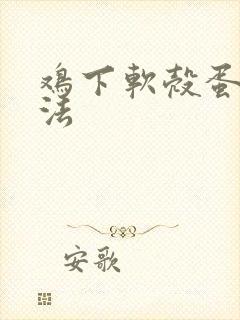 鸡下軟殼蛋
法
安歌